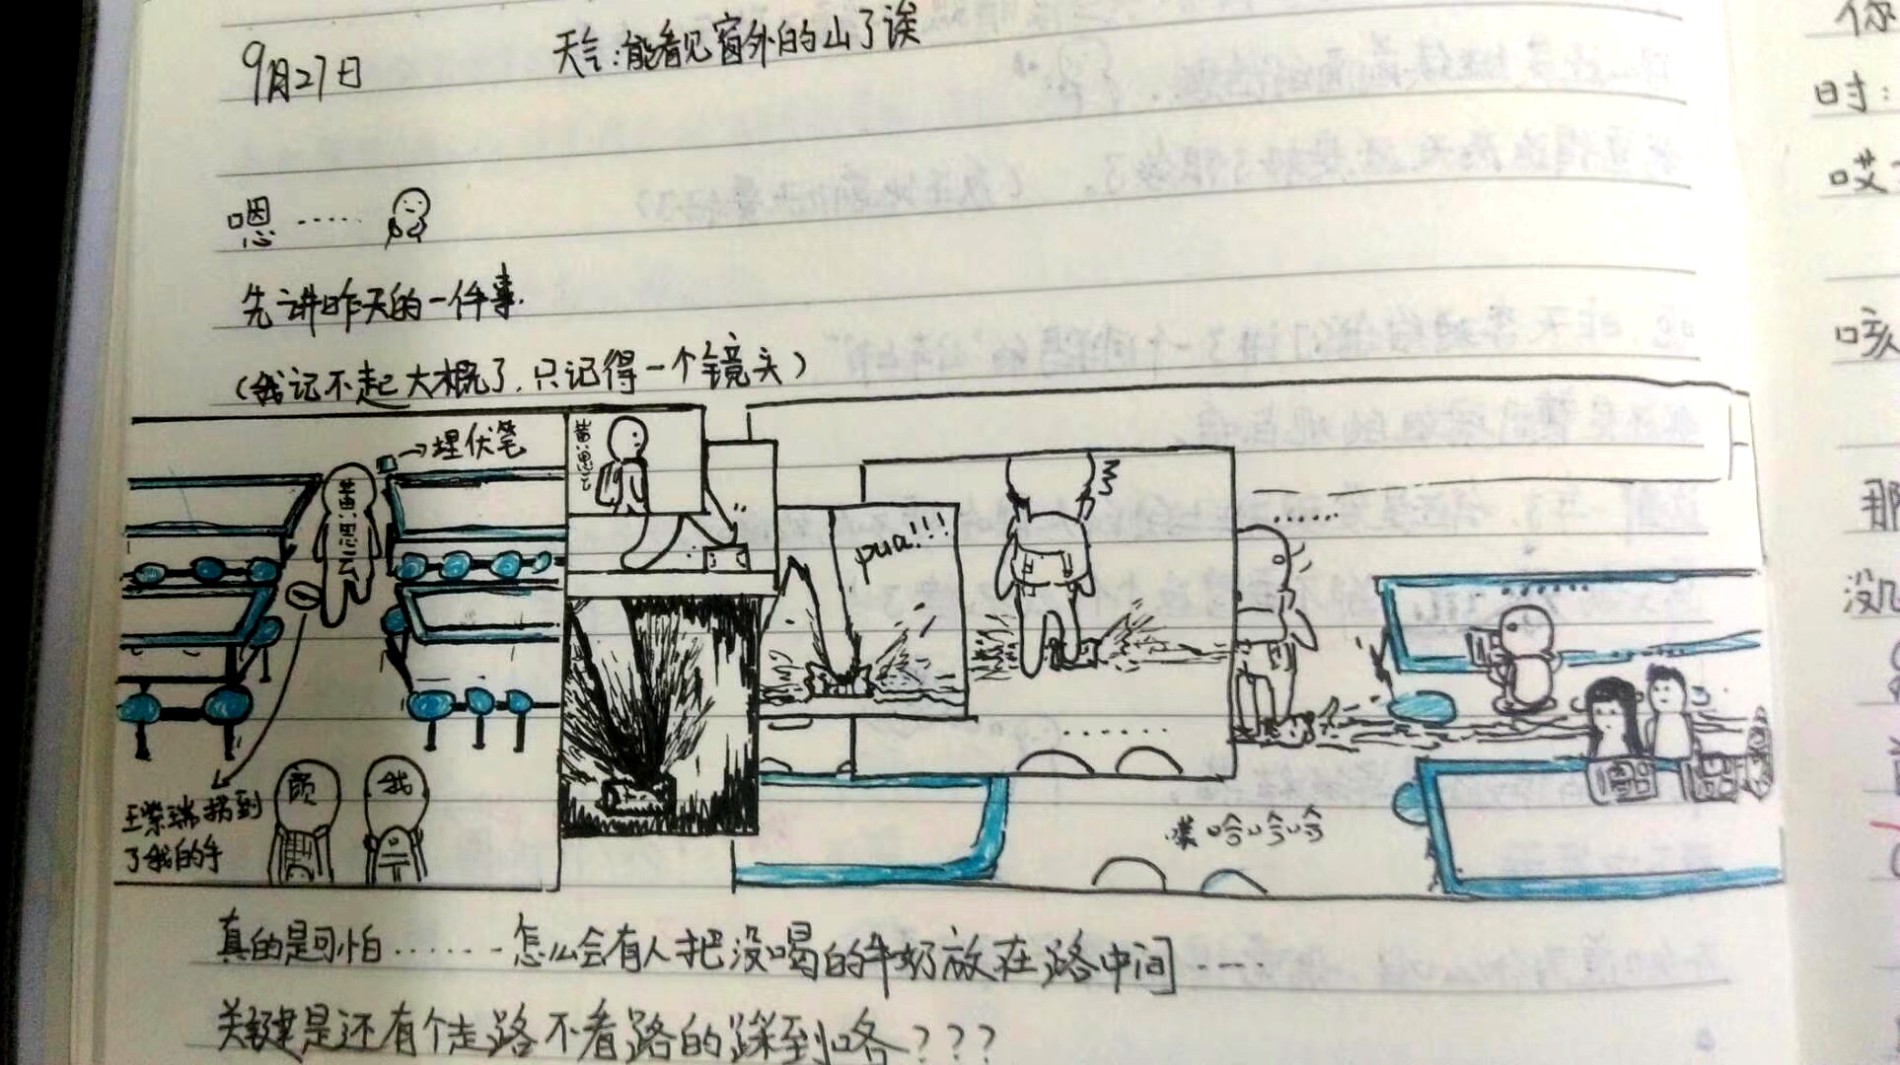 9月27日 天气:能看见窗外的山了诶
嗯……
先讲昨天的一件事.
(我记不起大概了,只记得一个镜头)
→埋伏笔
黄思云
王紫瑞拐到
了我的手
颜
我
黄思云
pua!!!
……
……
噗哈哈哈
真的是可怕……怎么会有人把没喝的牛奶放在路中间……
关键是还有个走路不看路的踩到咯???
你
时:
哎
咳
那
没